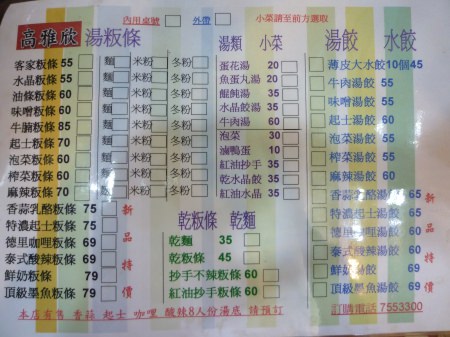 內用桌號 外帶 小菜請至前方選取
高雅欣 湯粄條
客家粄條 55 麵 米粉 冬粉
水晶粄條 55 麵 米粉 冬粉
油條粄條 60 麵 米粉 冬粉
味噌粄條 60 麵 米粉 冬粉
牛腩粄條 85 麵 米粉 冬粉
起士粄條 70 麵 米粉 冬粉
泡菜粄條 60 麵 米粉 冬粉
榨菜粄條 60 麵 米粉 冬粉
麻辣粄條 70 麵 米粉 冬粉
香蒜乳酪粄條 75
特濃起士粄條 75
德里咖哩粄條 69
泰式酸辣粄條 69
鮮奶粄條 79
頂級墨魚粄條 79
新品特價
湯類 小菜
蛋花湯 20
魚蛋丸湯 20
餛飩湯 35
水晶餃湯 30
牛肉湯 60
泡菜 30
滷鴨蛋 10
紅油抄手 35
乾水晶餃 35
紅油水晶 35
乾粄條 乾麵
乾麵 35
乾粄條 45
抄手不辣粄條 60
紅油抄手粄條 60
湯餃 水餃
薄皮大水餃10個45
牛肉湯餃 55
味噌湯餃 55
起士湯餃 55
泡菜湯餃 55
榨菜湯餃 55
麻辣湯餃 60
香蒜乳酪湯餃 69
特濃起士湯餃 69
德里咖哩湯餃 69
泰式酸辣湯餃 69
鮮奶湯餃 69
頂級墨魚湯餃 69
新品特價
本店有售 香蒜 起士 咖哩 酸辣8人份湯底 請預訂
訂購電話 7553300